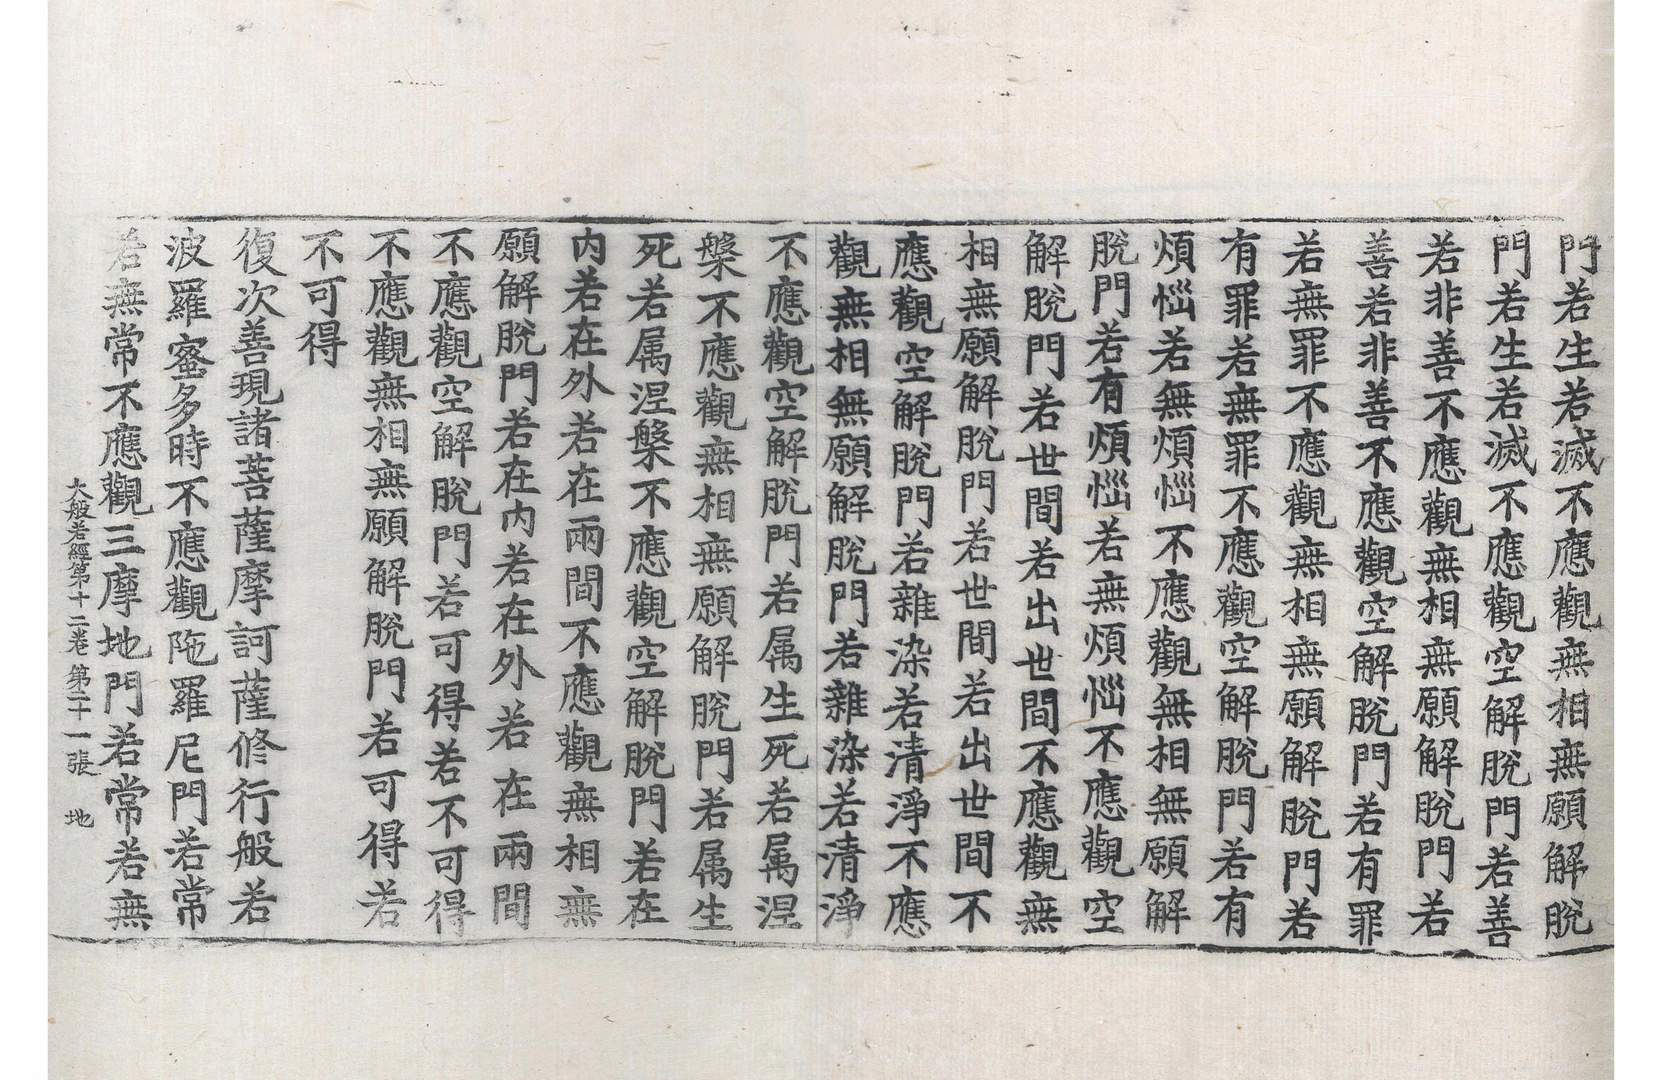 門若生若滅不應觀無相無願解脫
門若生若滅不應觀空解脫門若善
若非善不應觀無相無願解脫門若
善若非善不應觀空解脫門若有罪
若無罪不應觀無相無願解脫門若
有罪若無罪不應觀空解脫門若有
煩惱若無煩惱不應觀無相無願解
脫門若有煩惱若無煩惱不應觀空
解脫門若世間若出世間不應觀無
相無願解脫門若世間若出世間不
應觀空解脫門若雜染若清淨不應
觀無相無願解脫門若雜染若清淨
不應觀空解脫門若属生死若属涅
槃不應觀無相無願解脫門若属生
死若属涅槃不應觀空解脫門若在
内若在外若在兩間不應觀無相無
願解脫門若在内若在外若在兩間
不應觀空解脫門若可得若不可得
不應觀無相無願解脫門若可得若
不可得
復次善現諸菩薩摩訶薩修行般若
波羅蜜多時不應觀陁羅尼門若常
若無常不應觀三摩地門若常若無
大般若經第十二卷 第二十一張 地